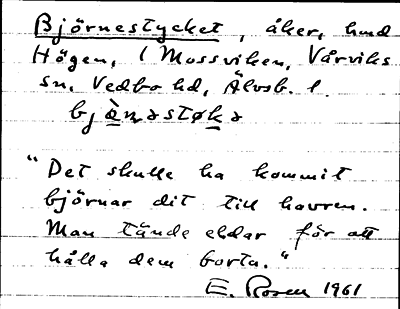 Björnestycket, åker, hmd
Högen, i Mossviken, Vårviks
sn, Vedbo hd, Älvsb. l.
bjö̀ɳəstøkə
"Det skulle ha kommit
björnar dit till havren.
Man tände eldar för att
hålla dem borta."
E. Rosen 1961